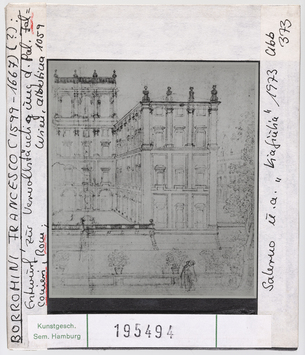 BORROMINI, FRANCESCO (1599-1667) (?):
Entwurf zur Vervollständigung d. Pal. Fal=
conieri, Rom,
Wien, Albertina 1059
Salerno u.a. „Via Giulia" 1973
Abb
373
Kunstgesch.
Sem. Hamburg
195494